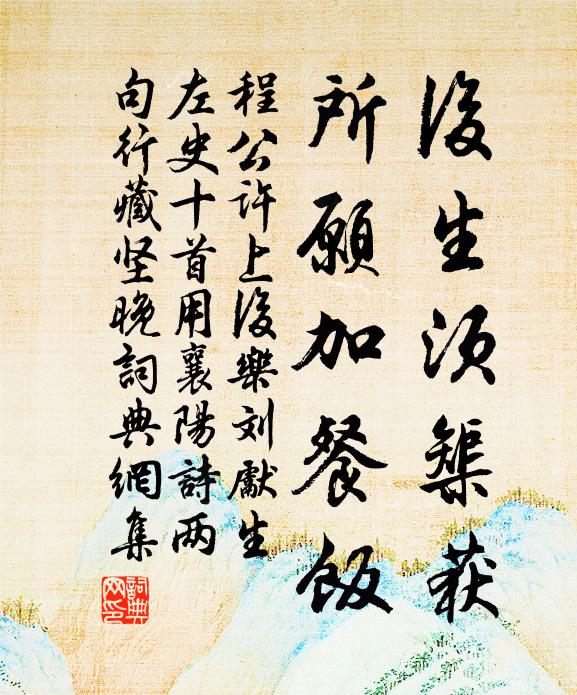 後生須榘获
所願加餐飯
程公許上後樂刘獻生
左史十首用襄陽詩两
句行藏坚晚詞典網集
詞典网印